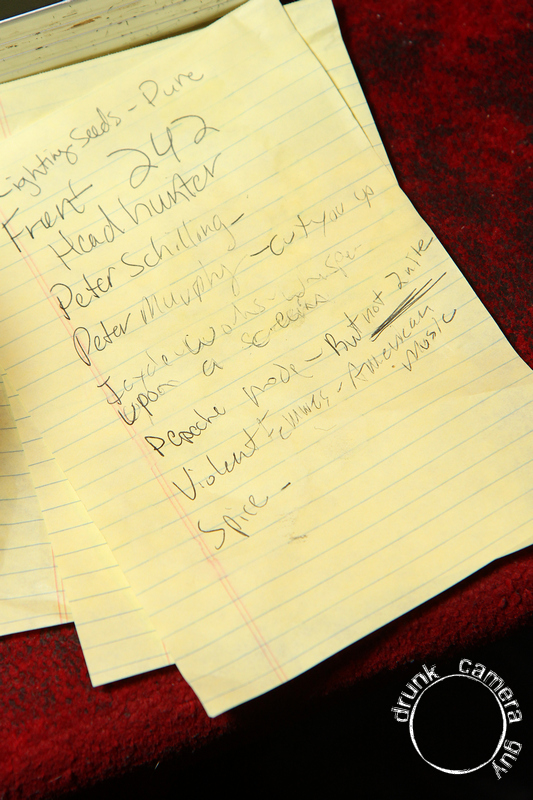 Lighting Seeds - Pure
Front 242
Headhunter
Peter Schilling -
Peter Murphy - cut you up
upon a scream
Depeche mode - But not 2nite
Violent Femmes - American
Music
Spice -
drunk camera guy